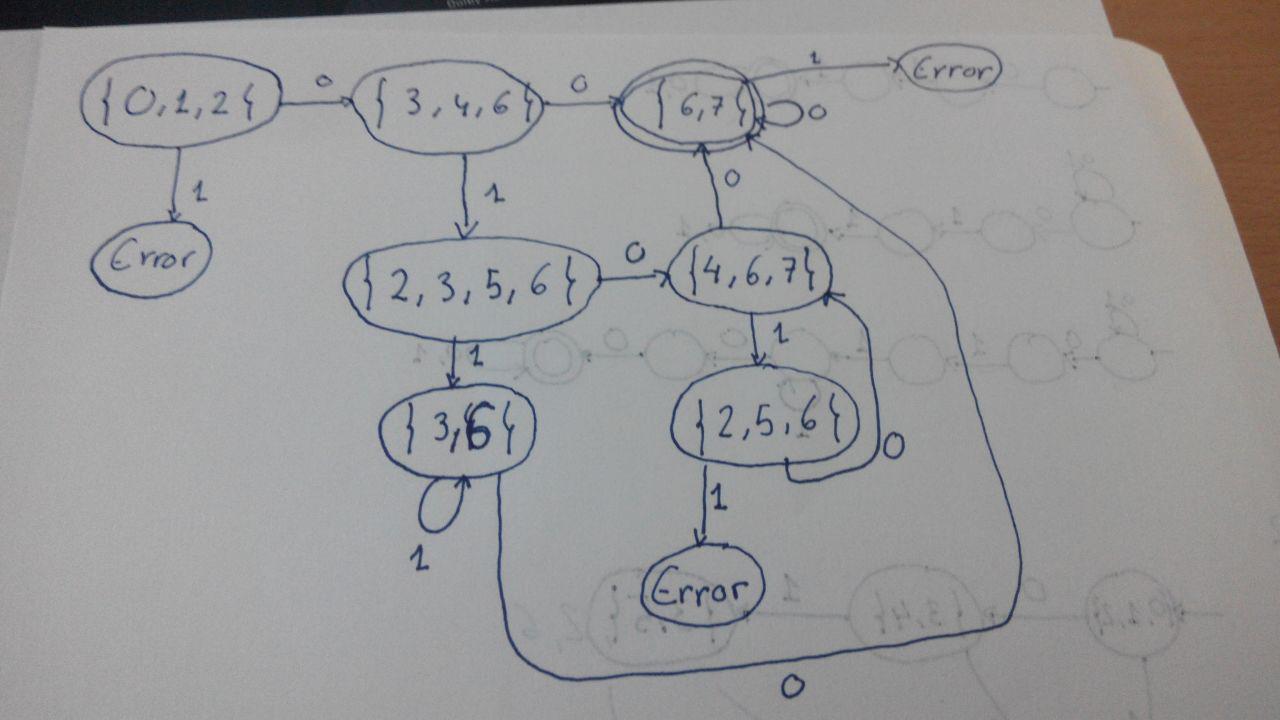 { 0,1,2 }
0
{ 3,4,6 }
0
{ 6,7 }
1
Error
0
1
1
0
Error
{ 2,3,5,6 }
0
{4,6,7}
1
1
{ 3,6 }
{ 2,5,6 }
0
1
1
Error
0